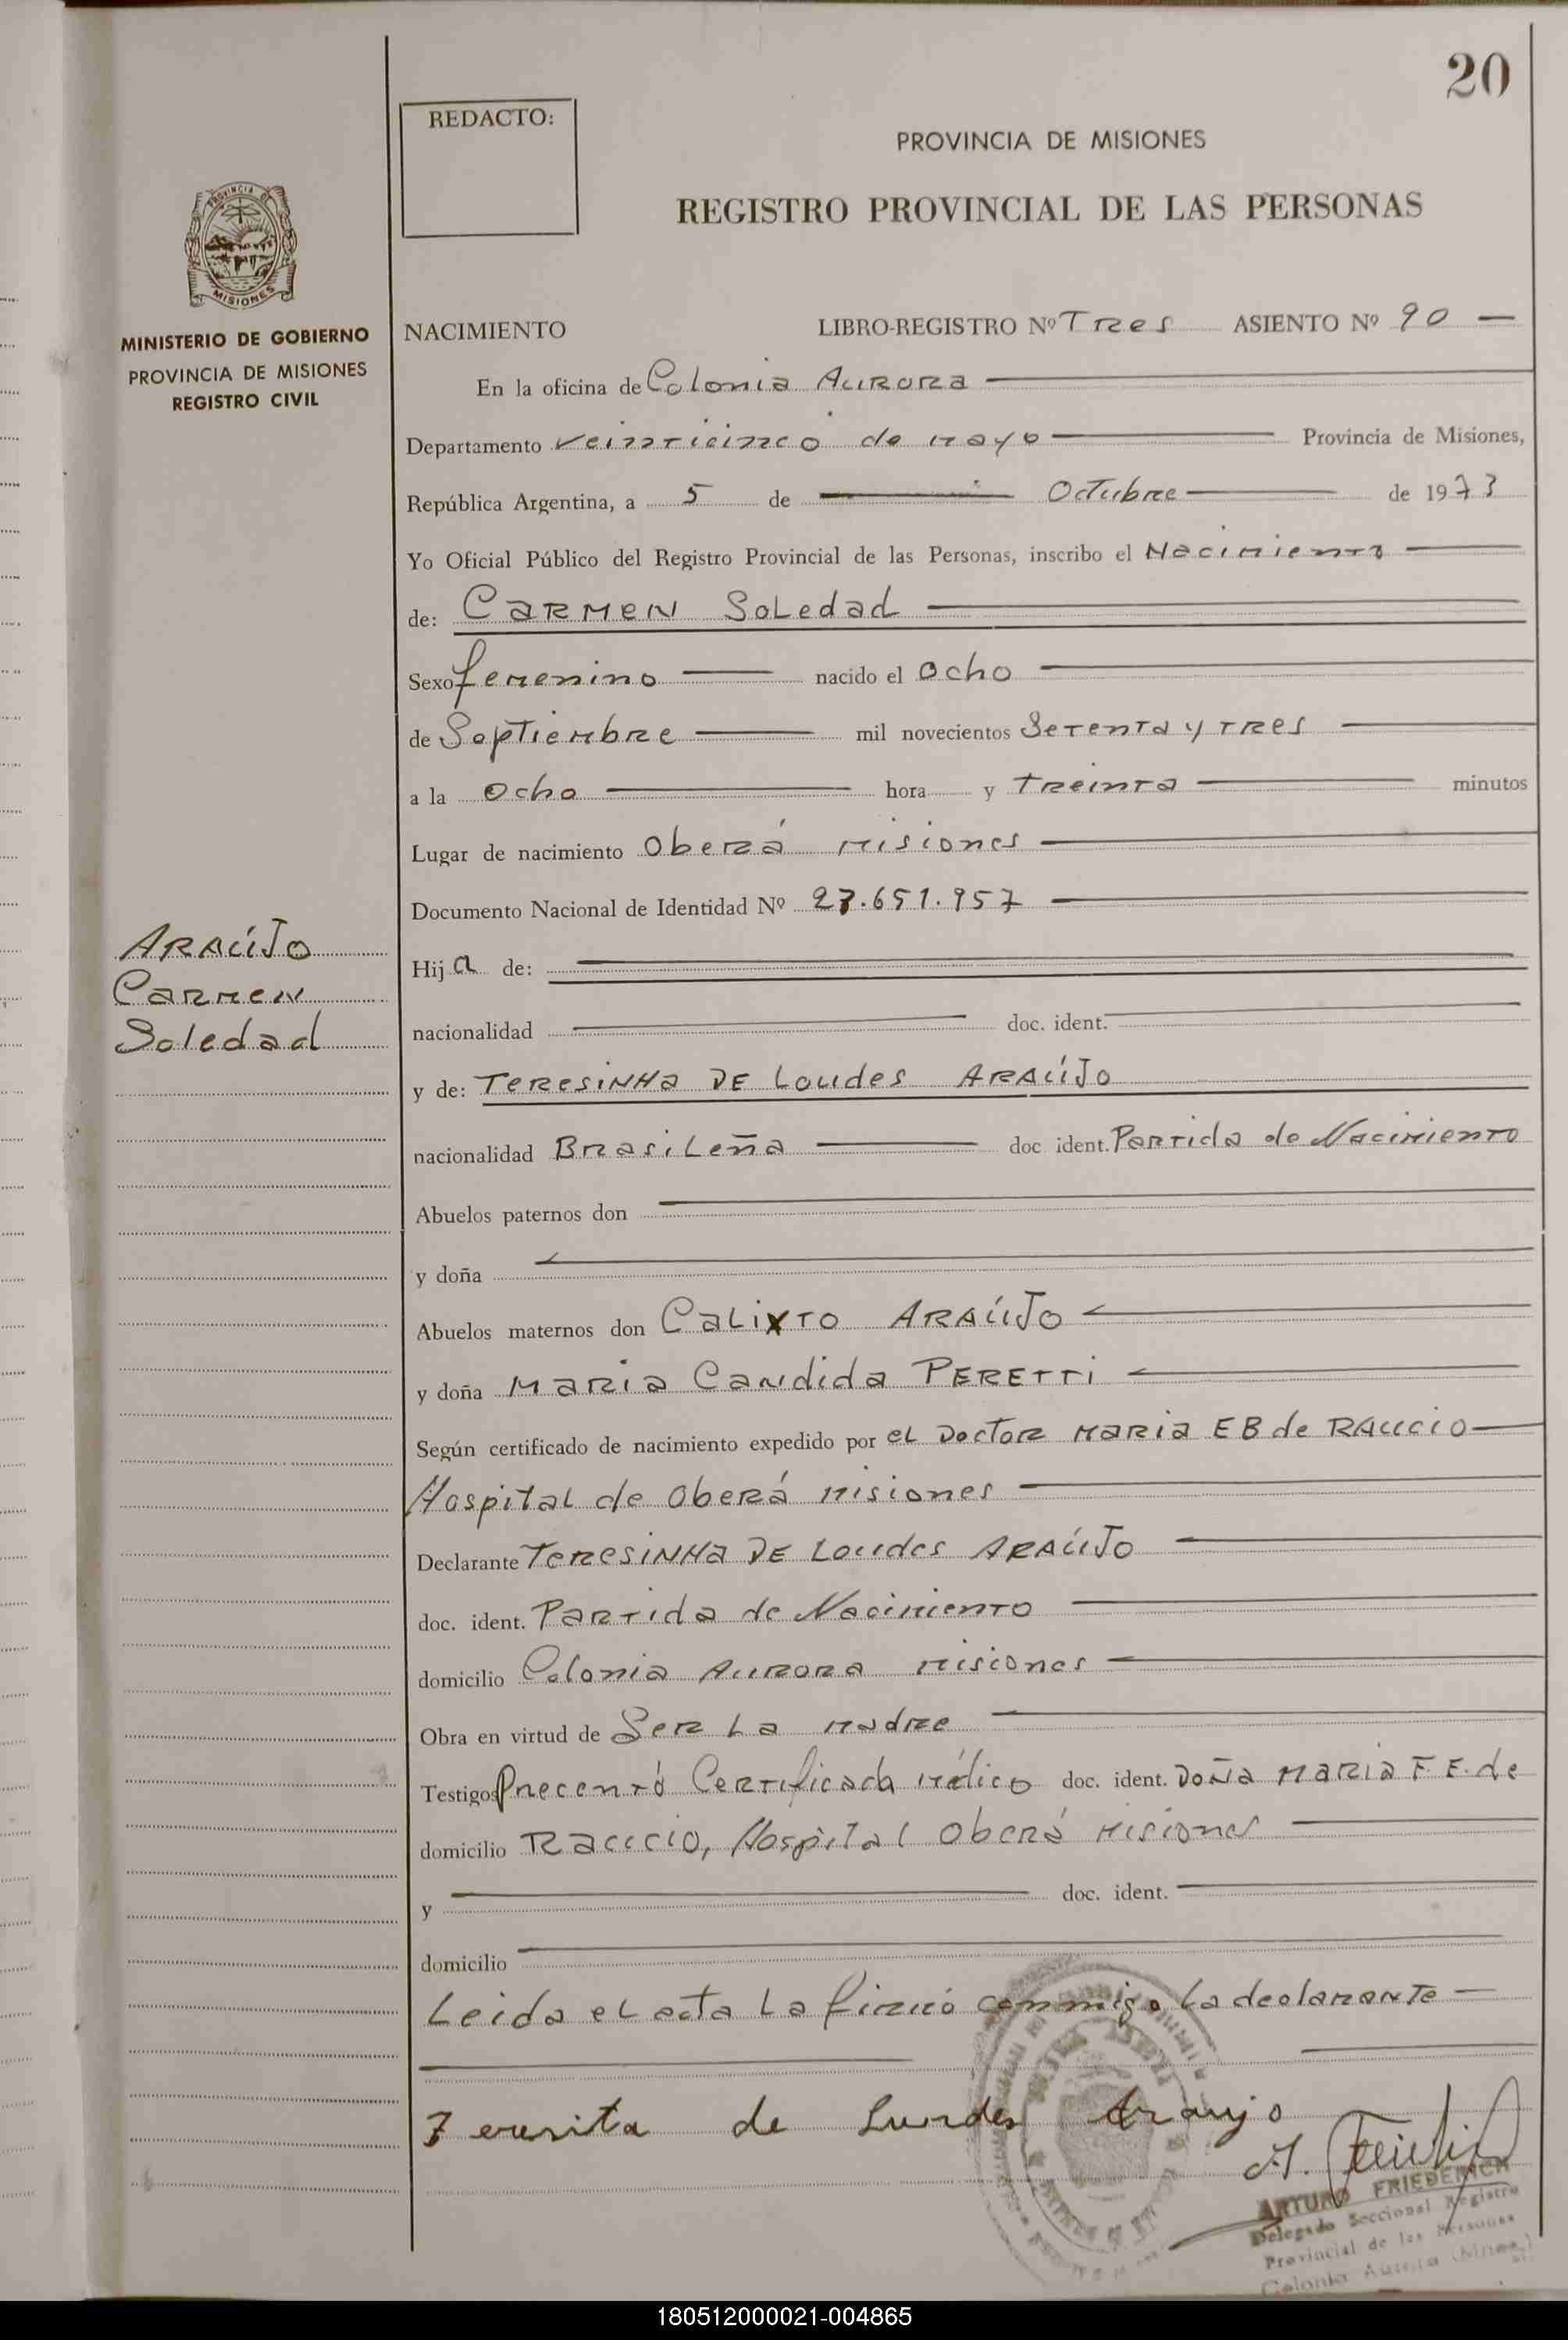 20
REDACTO:
PROVINCIA DE MISIONES
REGISTRO PROVINCIAL DE LAS PERSONAS
PROVINCIA DE
MISIONES
MINISTERIO DE GOBIERNO
PROVINCIA DE MISIONES
REGISTRO CIVIL
NACIMIENTO LIBRO-REGISTRO Nº Tres ASIENTO Nº 90 —
En la oficina de Colonia Aurora
Departamento veinticinco de mayo Provincia de Misiones,
República Argentina, a 5 de Octubre de 1973
Yo Oficial Público del Registro Provincial de las Personas, inscribo el Nacimiento
de: CARMEN SoLedad
Sexo femenino nacido el Ocho
de Septiembre mil novecientos Setenta y tres
a la Ocho hora y Treinta minutos
Lugar de nacimiento Oberá Misiones
Documento Nacional de Identidad Nº 23.651.957
ARAÚJO
Carmen
Soledad
Hija de:
nacionalidad doc. ident.
y de: TeresiNHa DE Loudes ARAÚJO
nacionalidad BrasiLeña doc ident. Partida de Nacimiento
Abuelos paternos don
y doña
Abuelos maternos don CaLixto ARAÚJO
y doña Maria Candida PERETTi
Según certificado de nacimiento expedido por eL Doctor Maria E B de RAUCIO
Hospital de Oberá Misiones
Declarante TeresiNHa DE Loudes ARAÚJO
doc. ident. Partida de Nacimiento
domicilio Colonia Aurora Misiones
Obra en virtud de Ser La Madre
Testigos Precentó Certificado Médico doc. ident. Doña Maria F E. de
domicilio Raucio, Hospital Oberá Misiones
y doc. ident.
domicilio
Leida eL acta La firmó conmigo La declarante —
Teresita de Lurdes Araujo
ARTURO FRIEDERICH
Delegado Seccional Registro
Provincial de las Personas
Colonia Aurora (Mnes.)
180512000021-004865